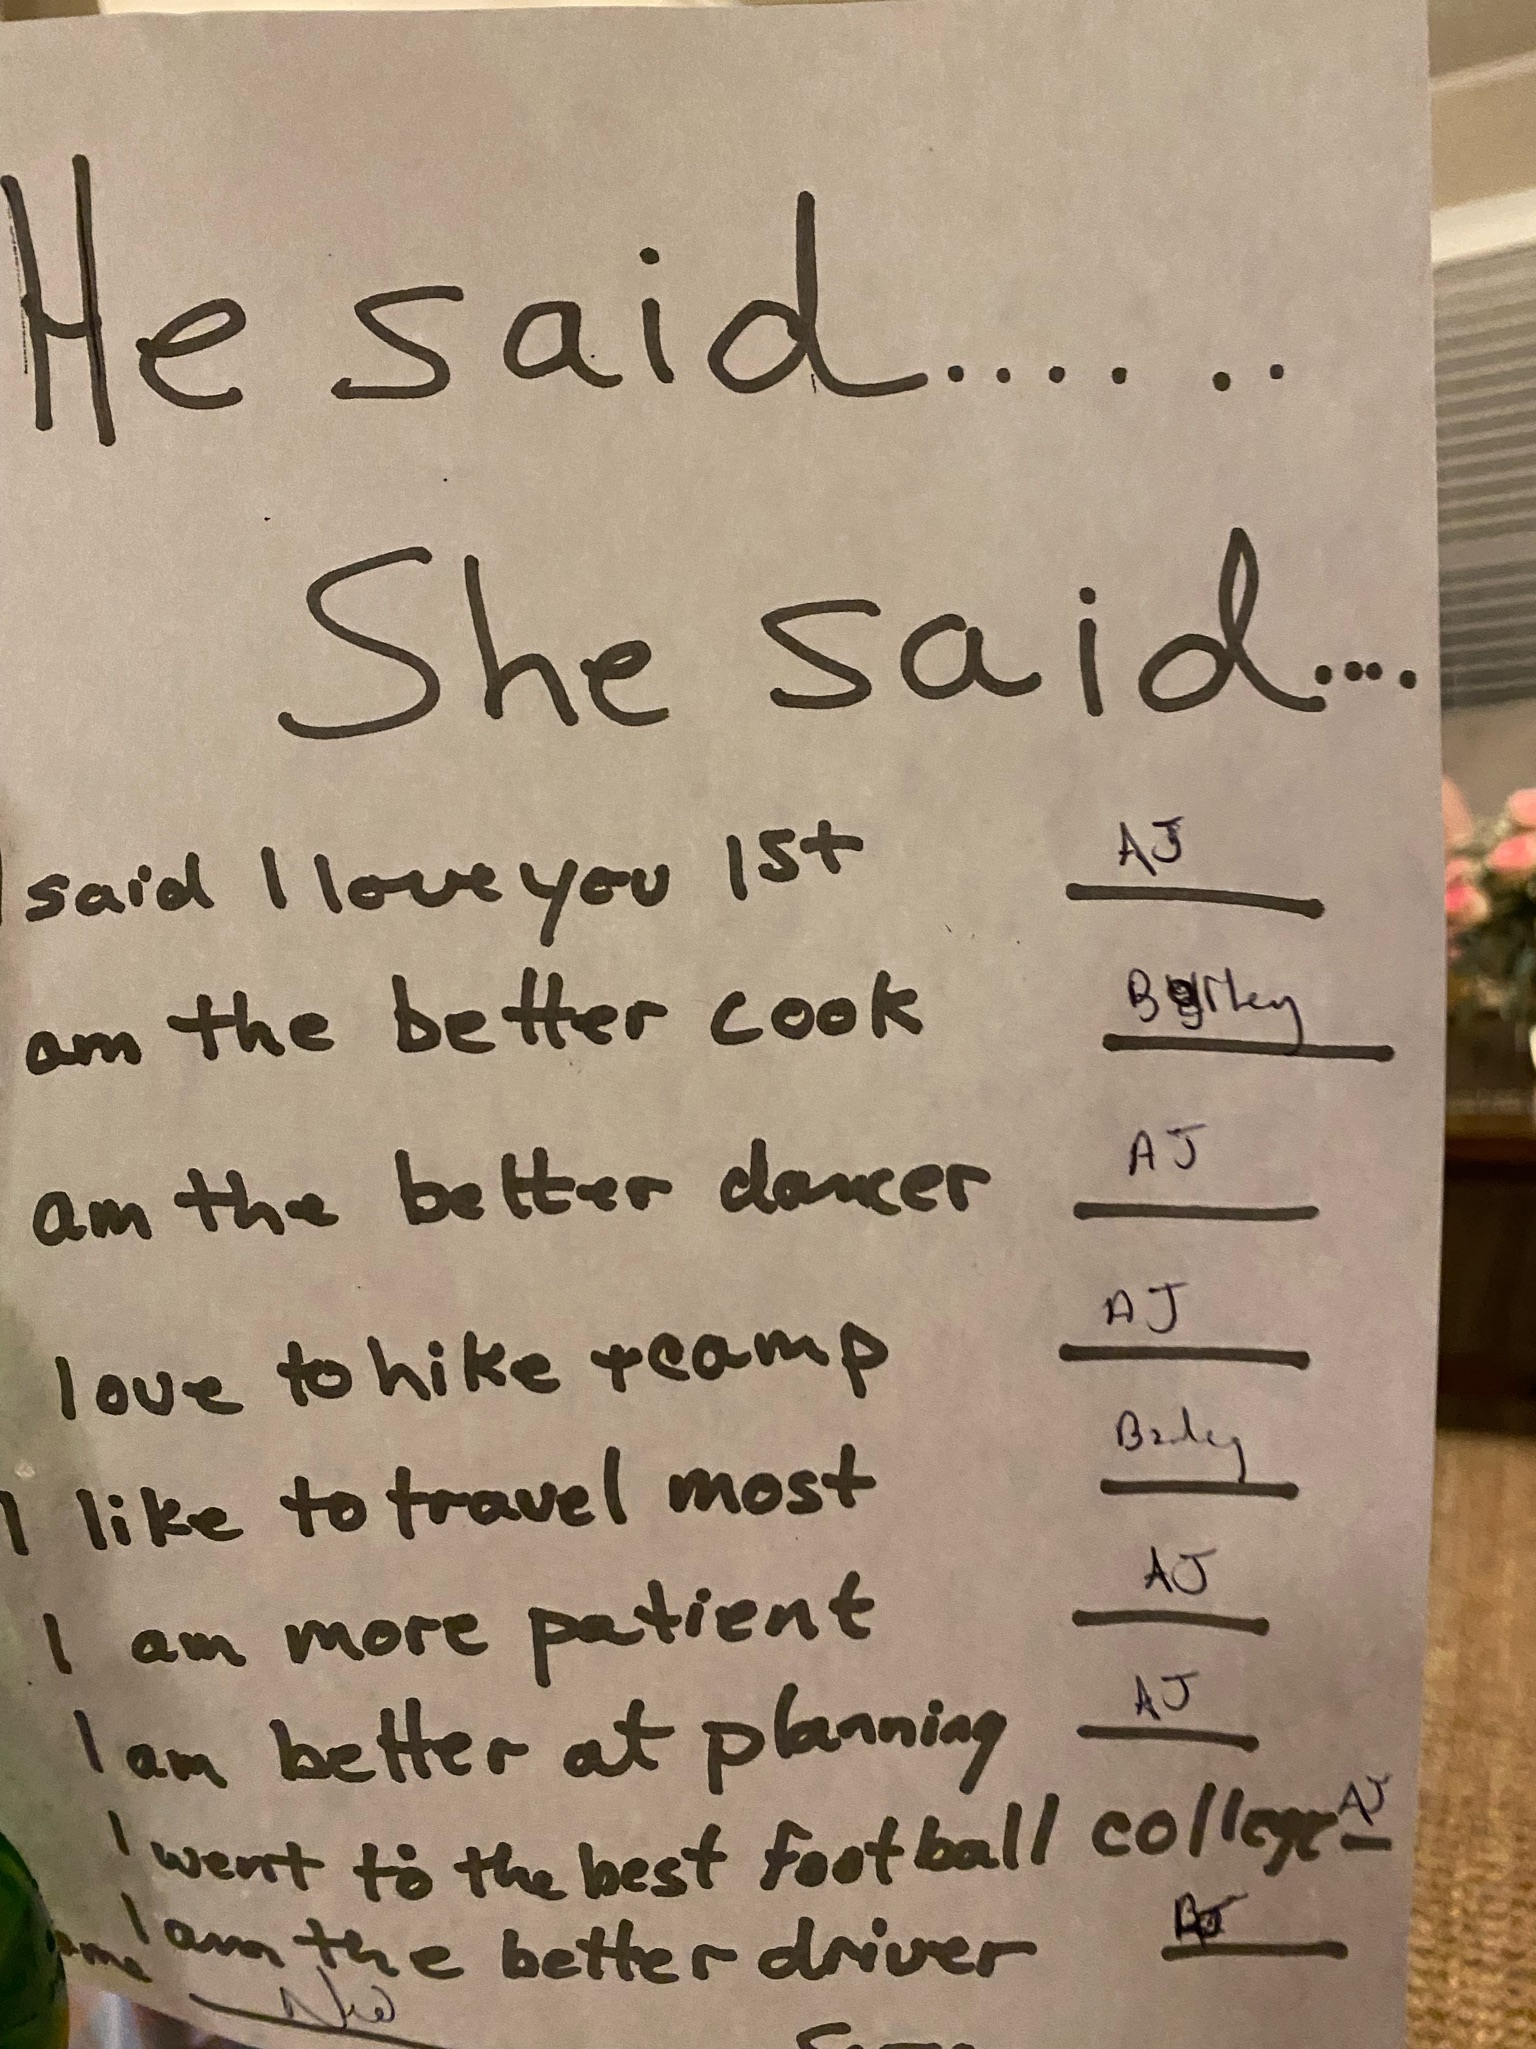 He said.......
She said....
said I love you 1st AJ
am the better cook
am the better dancer AJ
love to hike + camp AJ
I like to travel most Bailey
I am more patient AJ
I am better at planning AJ
I went to the best football college AJ
I am the better driver